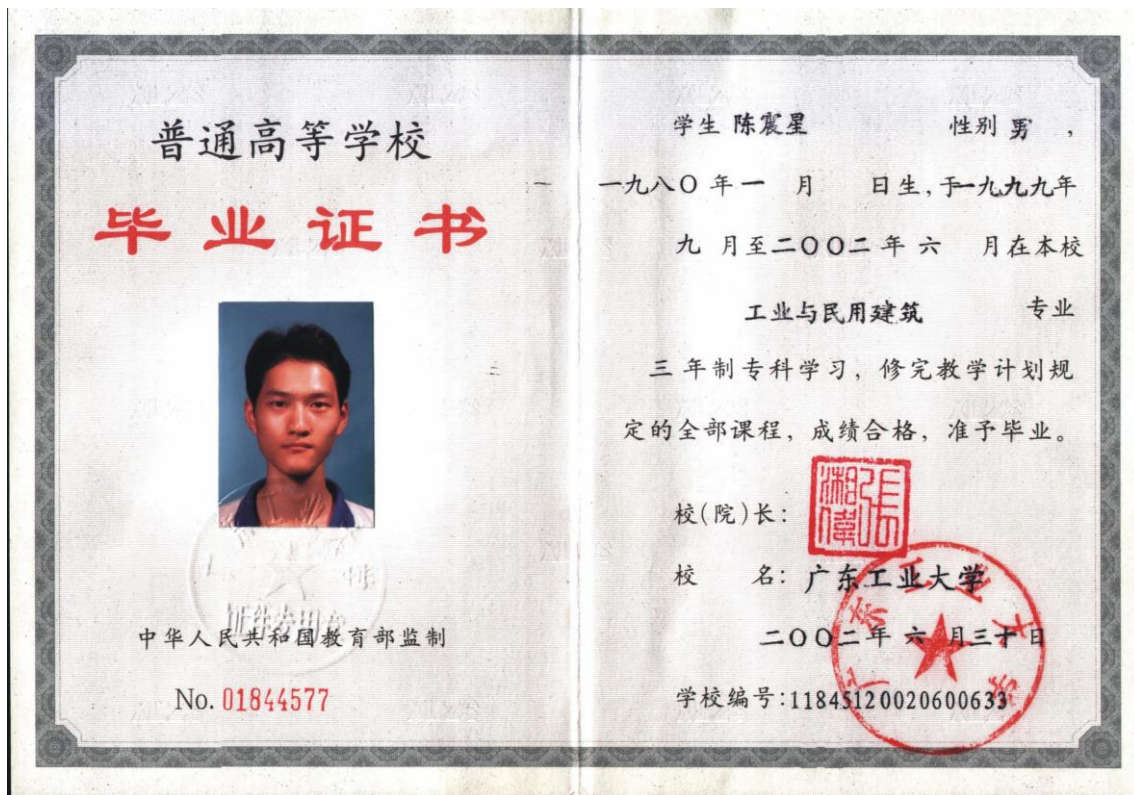 普通高等学校
毕业证书
证件专用章
中华人民共和国教育部监制
No. 01844577
学生 陈震星 性别 男 ,
一九八〇 年 一 月 日生, 于一九九九年
九 月至二〇〇二 年 六 月在本校
工业与民用建筑 专业
三 年制专科学习, 修完教学计划规
定的全部课程, 成绩合格, 准予毕业。
校(院)长: 張湘偉
校 名: 广东工业大学
二〇〇二年 六 月三十日
学校编号:11845120020600633
广东工业大学